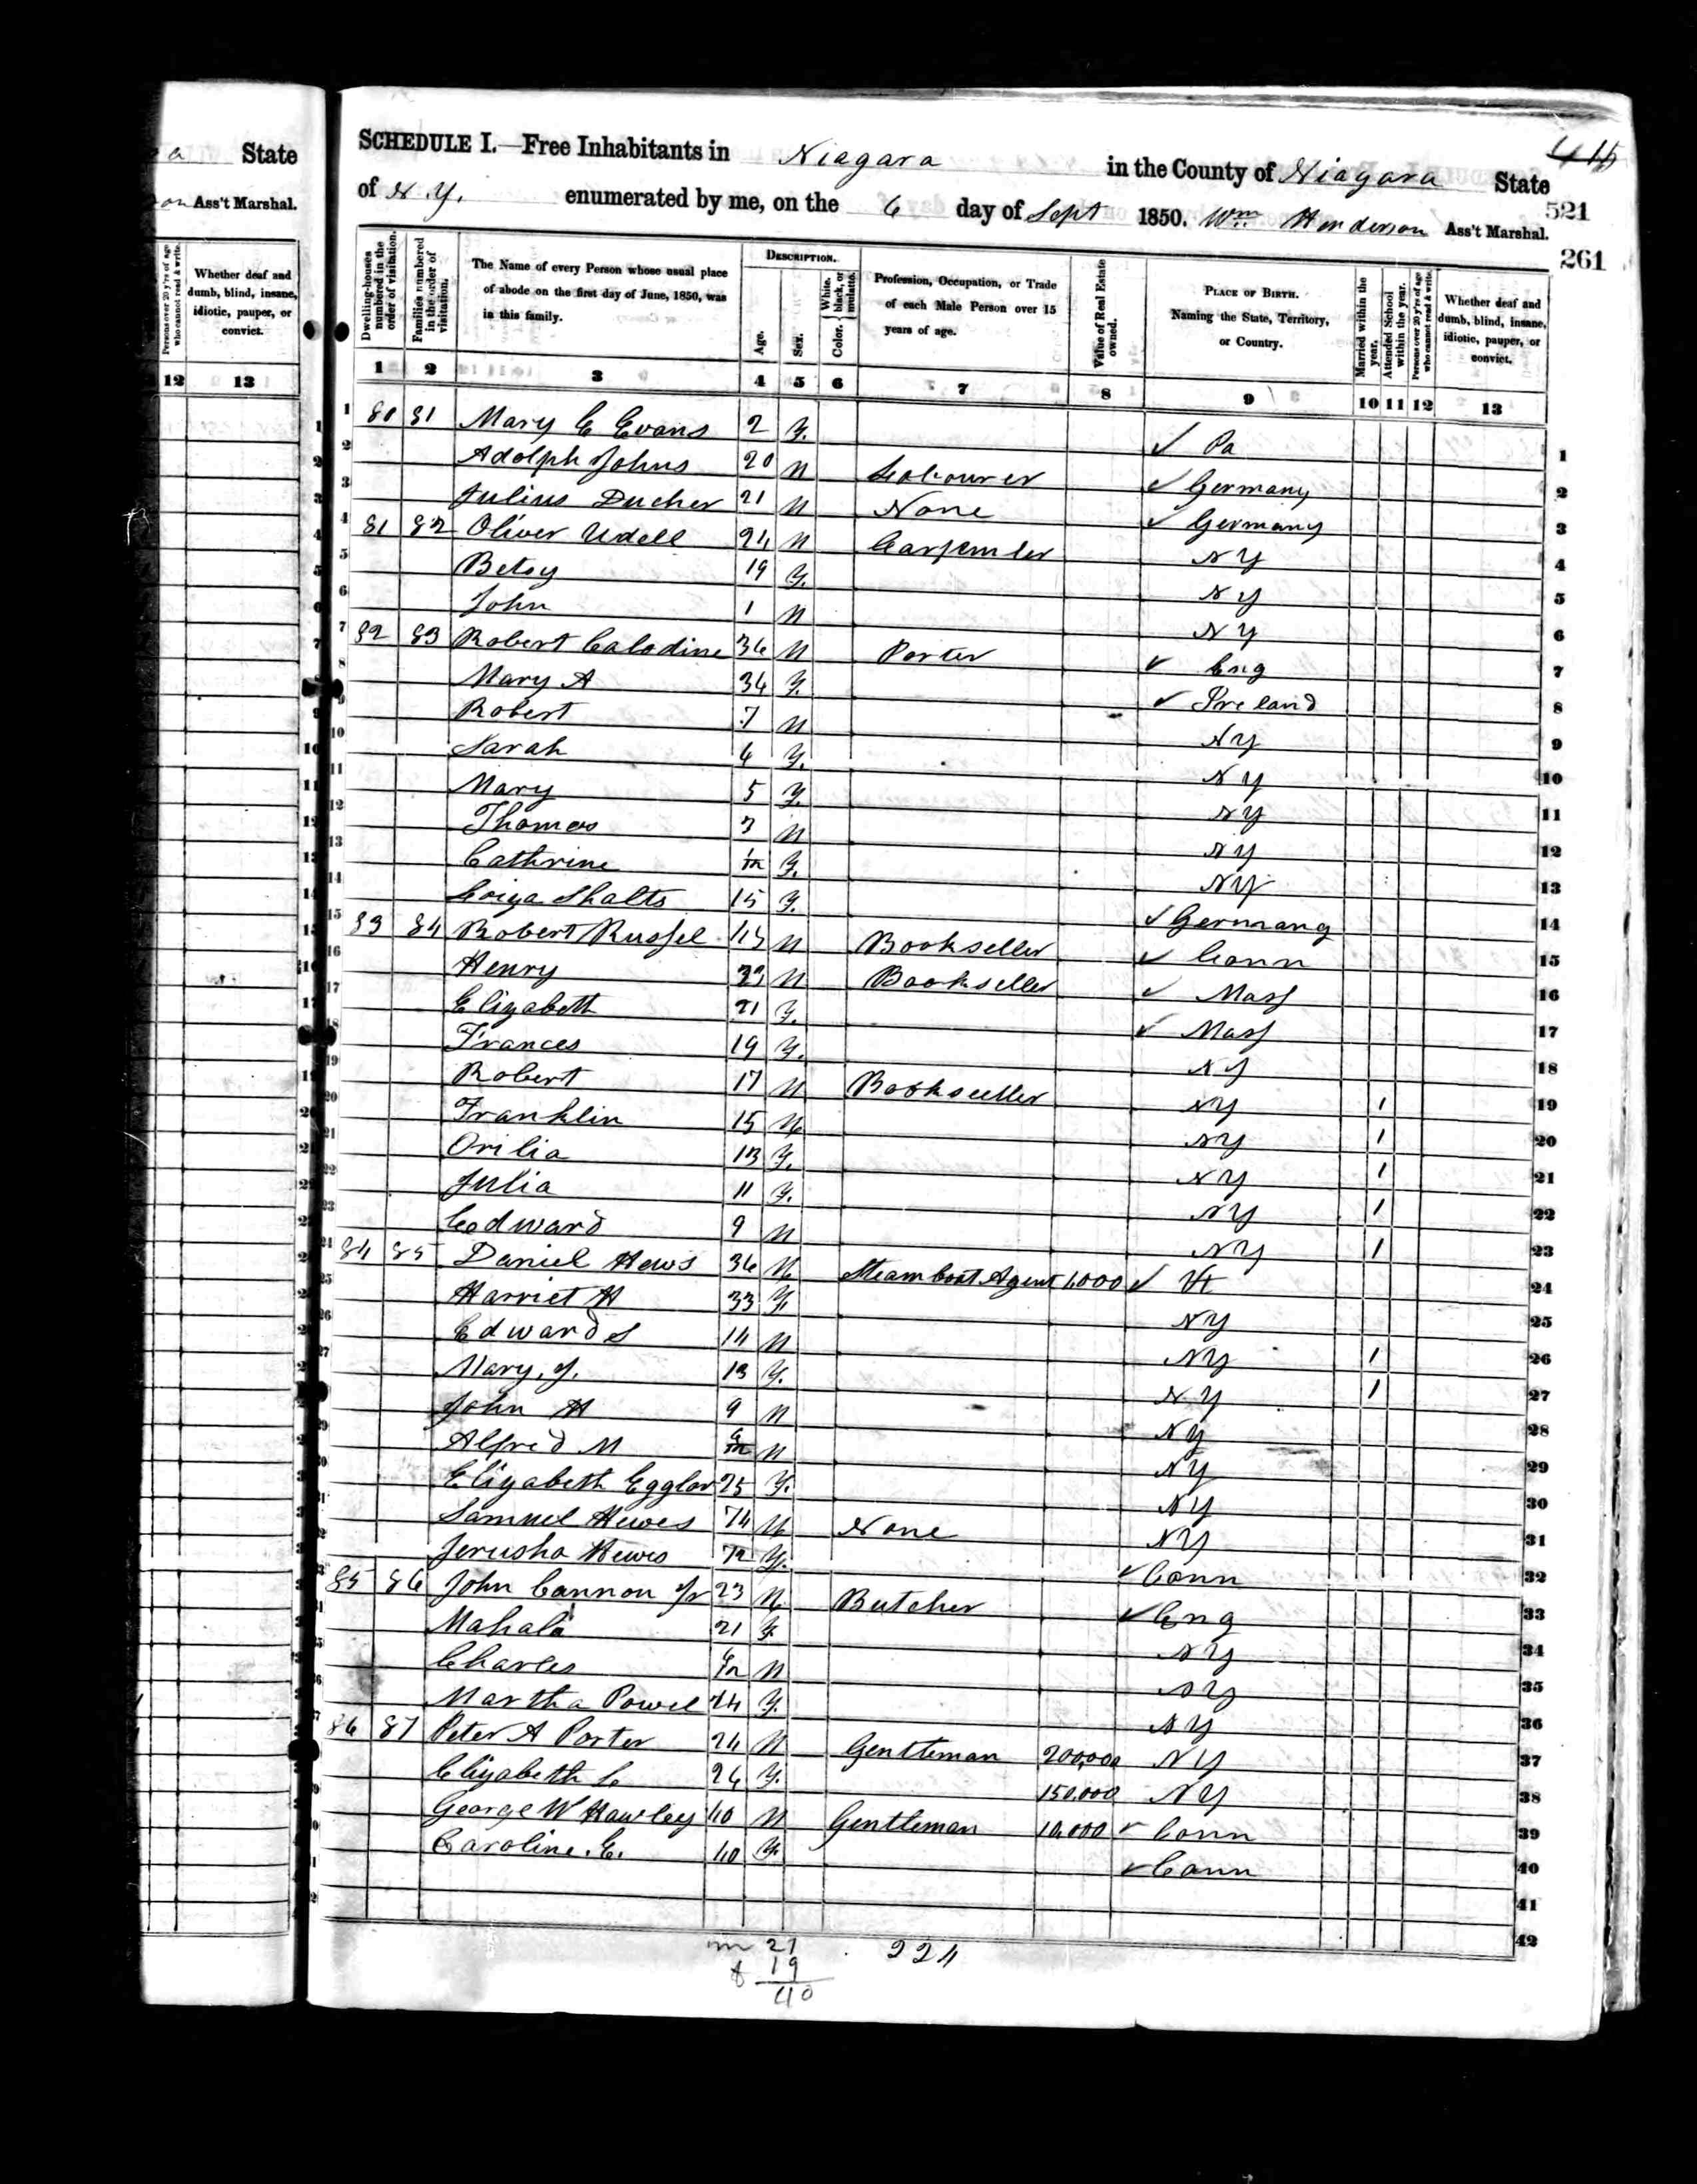 a State
on Ass't Marshal.
Persons over 20 y'rs of age who cannot read & write.
Whether deaf and dumb, blind, insane, idiotic, pauper, or convict.
12 13
SCHEDULE I.—Free Inhabitants in Niagara in the County of Niagara State
of N.Y. enumerated by me, on the 6 day of Sept 1850. Wm Henderson Ass't Marshal.
521
261
Dwelling-houses numbered in the order of visitation.
Families numbered in the order of visitation.
The Name of every Person whose usual place of abode on the first day of June, 1850, was in this family.
DESCRIPTION.
Age.
Sex.
Color. White, black, or mulatto.
Profession, Occupation, or Trade of each Male Person over 15 years of age.
Value of Real Estate owned.
PLACE OF BIRTH. Naming the State, Territory, or Country.
Married within the year.
Attended School within the year.
Persons over 20 y'rs of age who cannot read & write.
Whether deaf and dumb, blind, insane, idiotic, pauper, or convict.
1 2 3 4 5 6 7 8 9 10 11 12 13
1 80 81 Mary E Evans 2 F. ✓ Pa 1
2 Adolph Johns 20 M Labourer ✓ Germany 2
3 Julius Ducher 21 M None ✓ Germany 3
4 81 82 Oliver Udell 24 M Carpenter NY 4
5 Betsy 19 F. NY 5
6 John 1 M NY 6
7 82 83 Robert Calodine 36 M Porter ✓ Eng 7
8 Mary A 34 F. ✓ Ireland 8
9 Robert 7 M NY 9
10 Sarah 6 F. NY 10
11 Mary 5 F. NY 11
12 Thomas 3 M NY 12
13 Cathrine F. NY 13
14 Shalts 15 F. ✓ Germany 14
15 83 84 Robert Russel 45 M Bookseller ✓ Conn 15
16 Henry 23 M Bookseller ✓ Mass 16
17 Elizabeth 21 F. ✓ Mass 17
18 Frances 19 F. NY 18
19 Robert 17 M Bookseller NY 1 19
20 Franklin 15 M NY 1 20
21 Orilia 13 F. NY 1 21
22 Julia 11 F. NY 1 22
23 Edward 9 M NY 1 23
24 84 85 Daniel Hews 36 M Steam boat Agent 1,000 ✓ Vt 24
25 Harriet H 33 F. NY 25
26 Edward S 14 M NY 1 26
27 Mary. J. 13 F. NY 1 27
28 John H 9 M NY 28
29 Alfred M M NY 29
30 Elizabeth Eggler 25 F. NY 30
31 Samuel Hewes 74 M None NY 31
32 Jerusha Hewes 72 F. ✓ Conn 32
33 85 86 John Cannon Jr 23 M Butcher ✓ Eng 33
34 Mahala 21 F. NY 34
35 Charles M NY 35
36 Martha Powel 24 F. NY 36
37 86 87 Peter A Porter 24 M Gentleman 200,000 NY 37
38 Elizabeth C 26 F. 150,000 NY 38
39 George W Hawley 40 M Gentleman 10,000 ✓ Conn 39
40 Caroline. E. 40 F. ✓ Conn 40
41
42
m 21 224
f 19
40